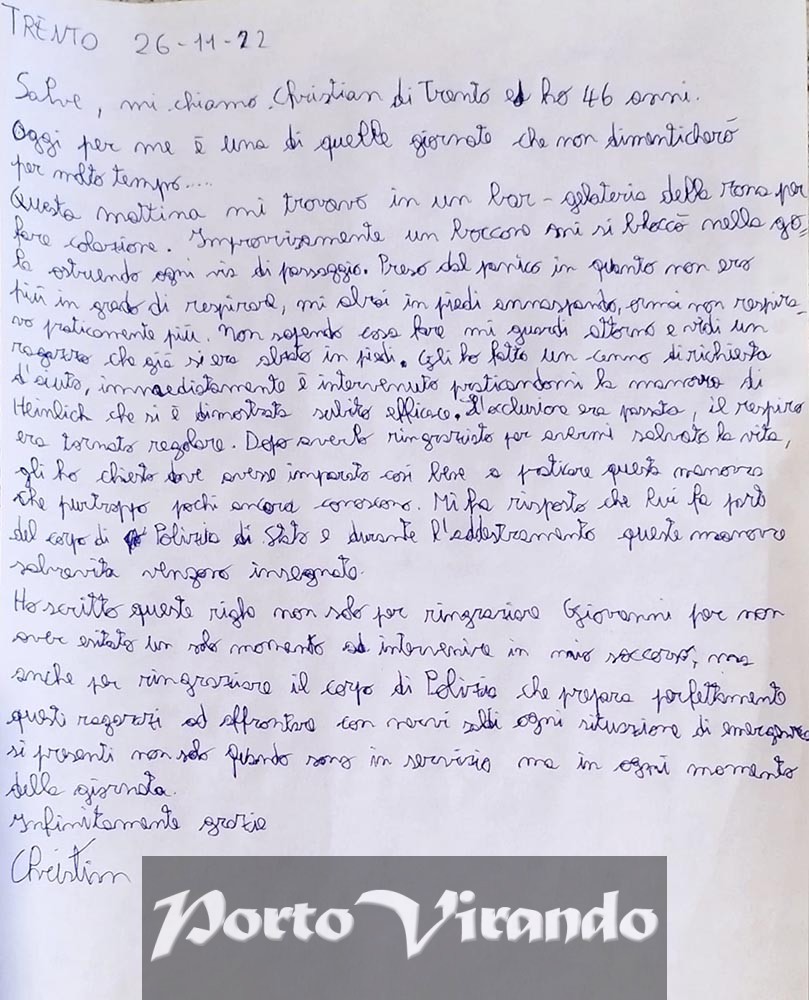 TRENTO 26-11-22
Salve, mi chiamo Christian di Trento ed ho 46 anni.
Oggi per me è una di quelle giornate che non dimenticherò
per molto tempo.....
Questa mattina mi trovavo in un bar-gelateria della zona per
fare colazione. Improvvisamente un boccone mi si bloccò nella go=
la ostruendo ogni via di passaggio. Preso dal panico in quanto non ero
più in grado di respirare, mi alzai in piedi annaspando, ormai non respira-
vo praticamente più. Non sapendo cosa fare mi guardi attorno e vidi un
ragazzo che già si era alzato in piedi. Gli ho fatto un cenno di richiesta
d'aiuto, immediatamente è intervenuto praticandomi la manovra di
Heimlich che si è dimostrata subito efficace. L'occlusione era passata, il respiro
era tornato regolare. Dopo averlo ringraziato per avermi salvato la vita,
gli ho chiesto dove avesse imparato così bene a praticare questa manovra
che purtroppo pochi ancora conoscono. Mi ha risposto che lui fa parte
del corpo di Polizia di Stato e durante l'addestramento queste manovre
salvavita vengono insegnate.
Ho scritto queste righe non solo per ringraziare Giovanni per non
aver esitato un solo momento ad intervenire in mio soccorso, ma
anche per ringraziare il corpo di Polizia che prepara perfettamente
questi ragazzi ad affrontare con nervi saldi ogni situazione di emergenza
si presenti non solo quando sono in servizio ma in ogni momento
della giornata.
Infinitamente grazie
Christian
Porto Virando